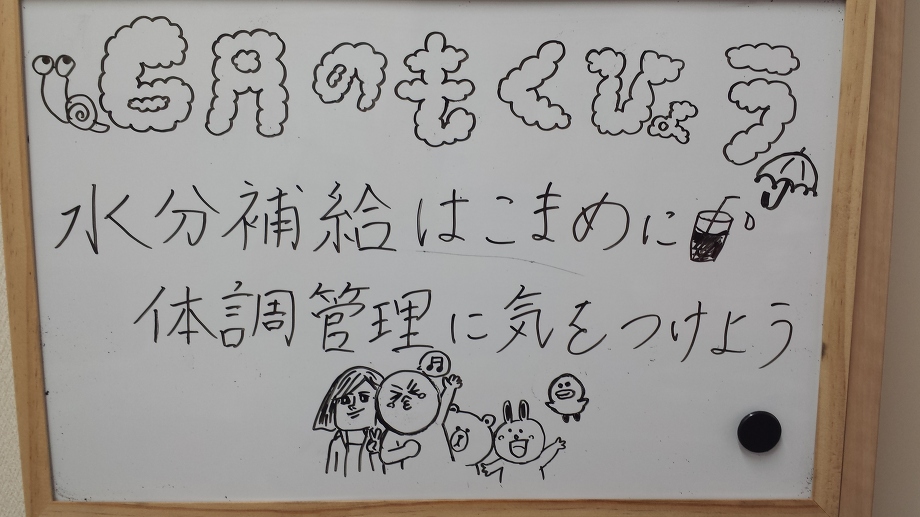 6月のもくひょう
水分補給はこまめに
体調管理に気をつけよう